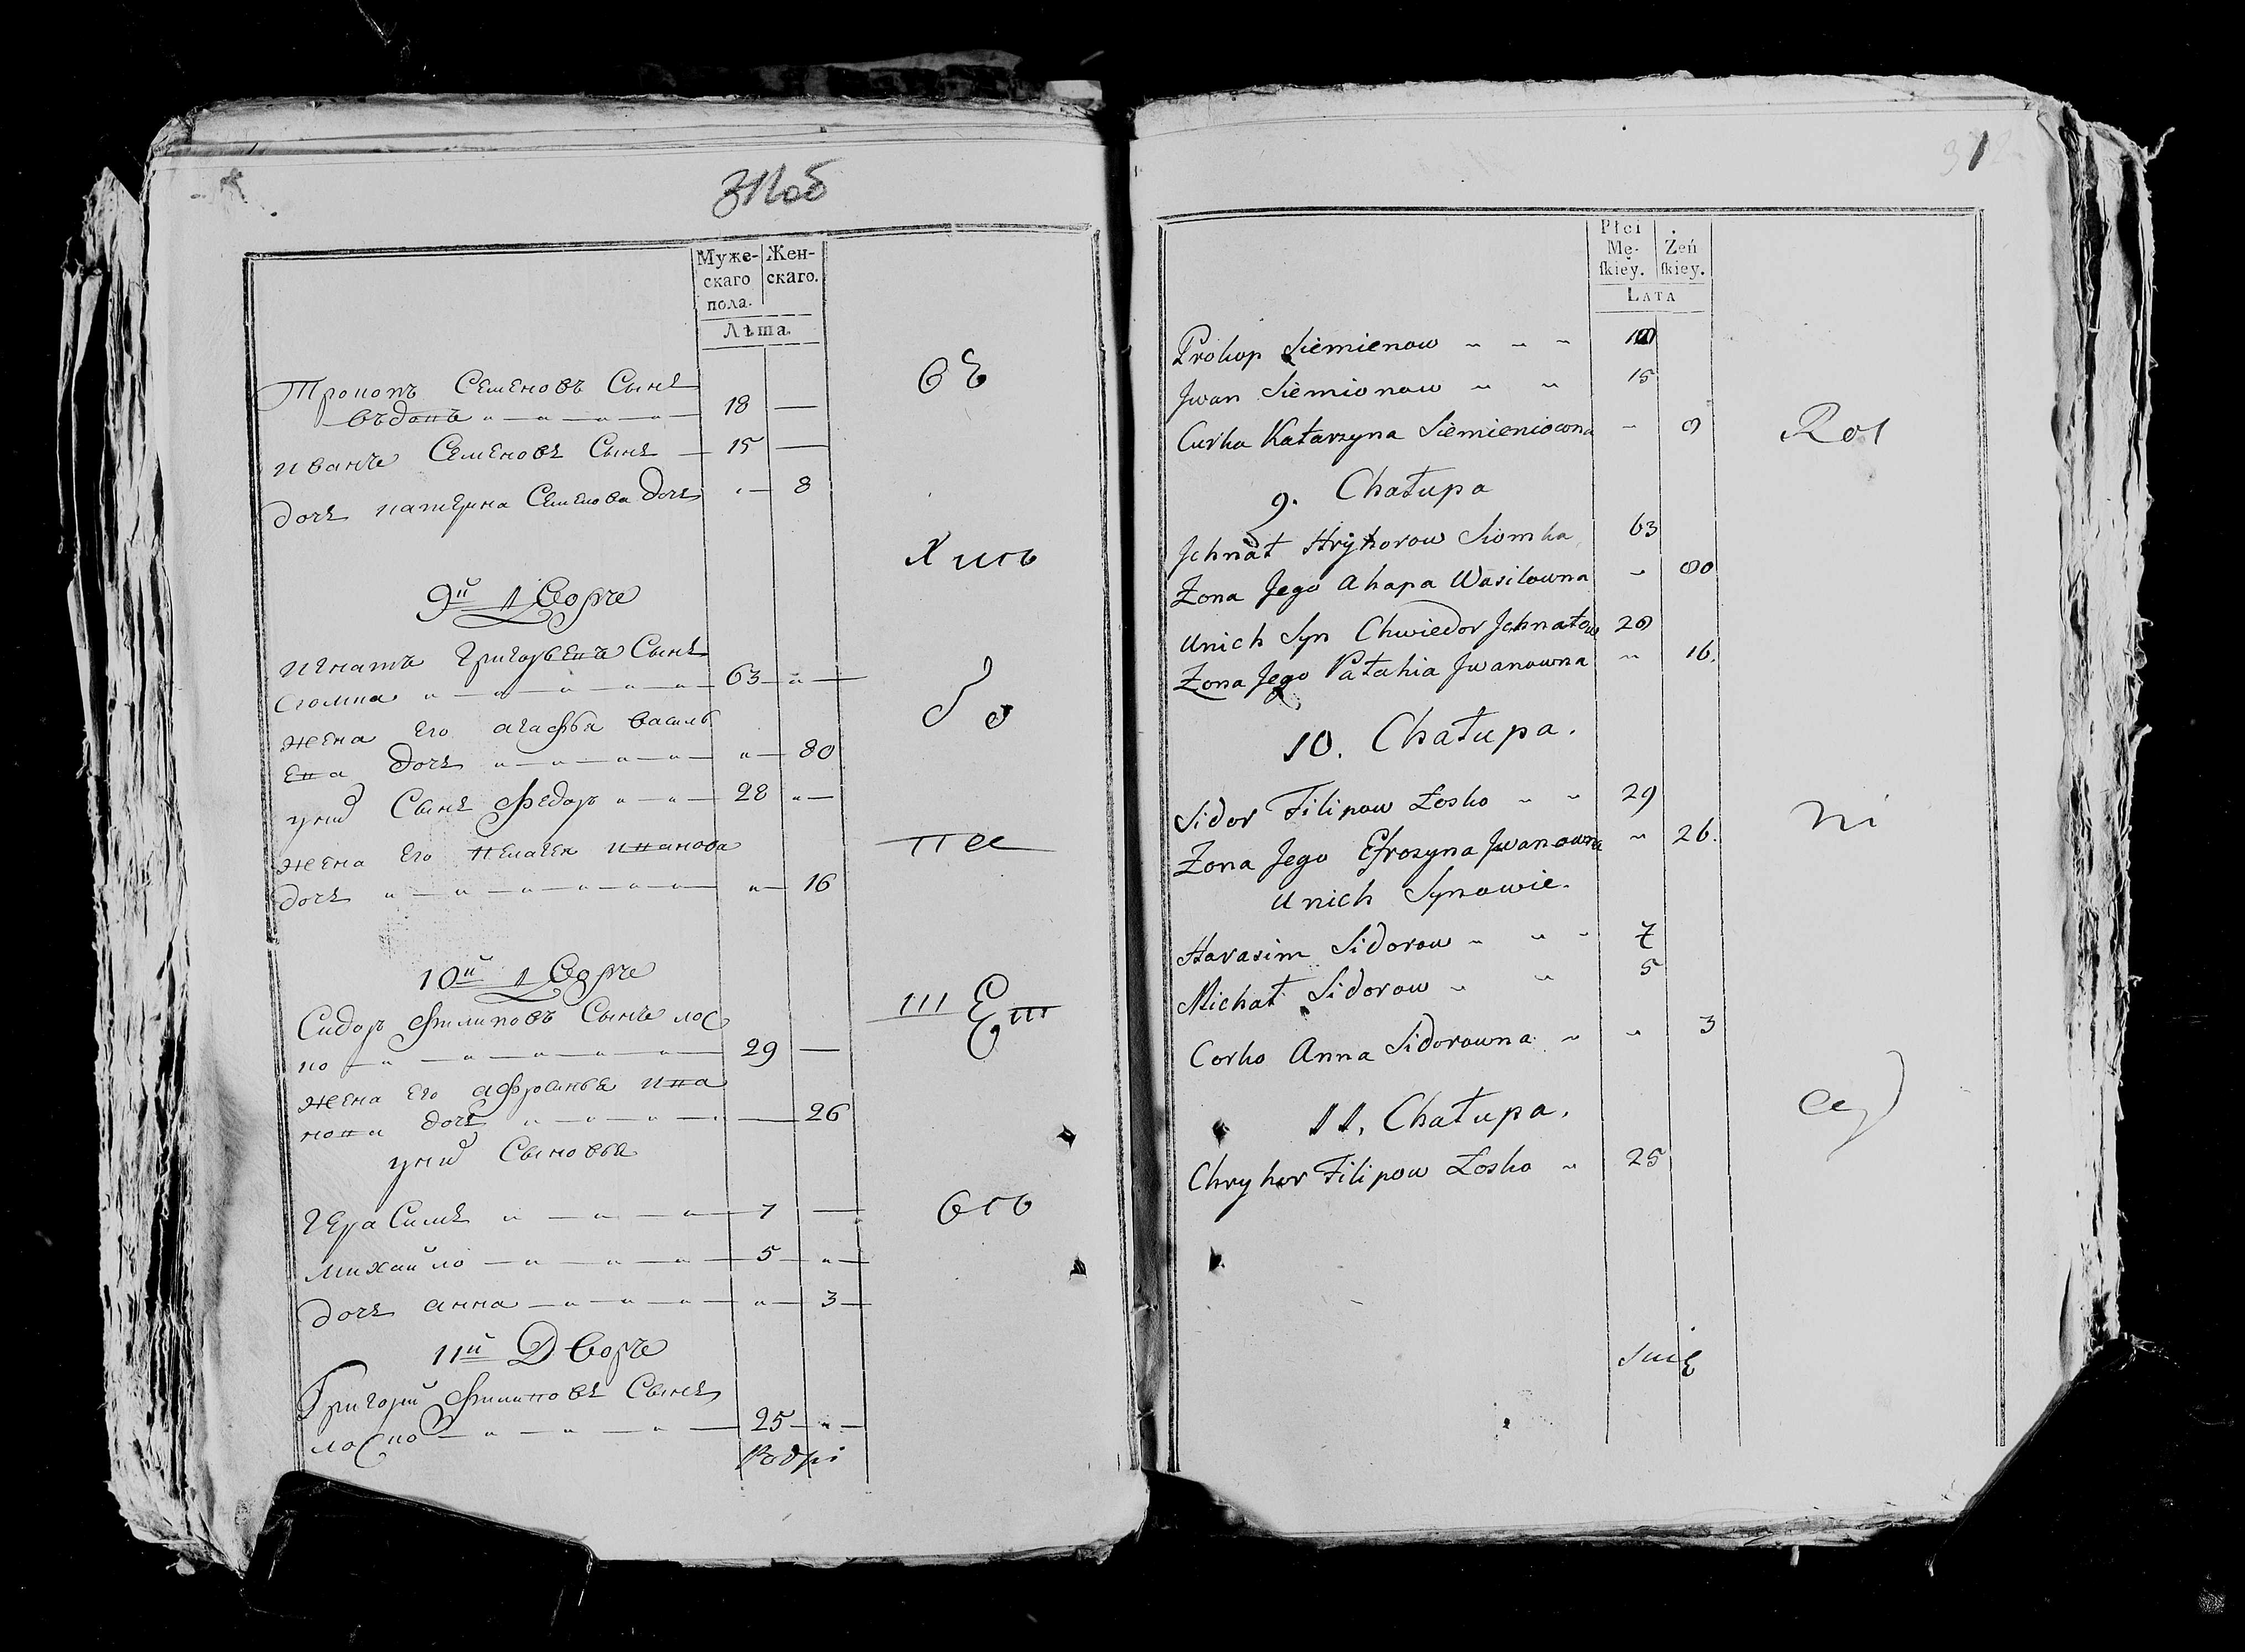 311об
Муже-
скаго
пола.
Жен-
скаго.
Лѣта.
Прокопъ Семеновъ Сынъ
вѣдокъ 18
Иванъ Семеновъ Сынъ 15
дочь Катерина Семенова дочь 8
9й Дворъ
Игнатъ Григорьевъ Сынъ
Сіомка 63
жена его Агафья Василь
ева дочь 80
у них Сынъ Федоръ 28
жена его Пелагея Иванова
дочь 16
10й Дворъ
Сидоръ Филиповъ Сынъ Лос
ко 29
жена его Афросинья Ива
нова дочь 26
у них Сыновья
Герасимъ 7
Михайло 5
дочь Анна 3
11й Дворъ
Григорій Филиповъ Сынъ
Лоско 25
Płci
Mę-
skiey.
Żeń
skiey.
LATA
Prokop Siemienow
Jwan Siemionow 15
Curka Katarzyna Siemieniowna 8
9. Chałupa
Jchnat Hryhorow Siomka 63
Żona Jego Ahapa Wasilowna 80
Unich Syn Chwiedor Jchnatow 28
Żona Jego Pałahia Jwanowna 16.
10. Chałupa.
Sidor Filipow Łosko 29
Żona Jego Efrozyna Jwanowna 26.
Unich Synowie.
Harasim Sidorow 7
Michał Sidorow 5
Corko Anna Sidorowna 3
11. Chałupa.
Chryhor Filipow Łosko 25